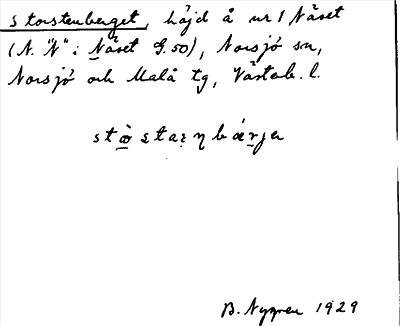 Storstenberget, höjd å nr 1 Näset
(N. "N": Näset G.50), Norsjö sn,
Norsjö och Malå tg, Västerb. l.
B. Nygren 1929